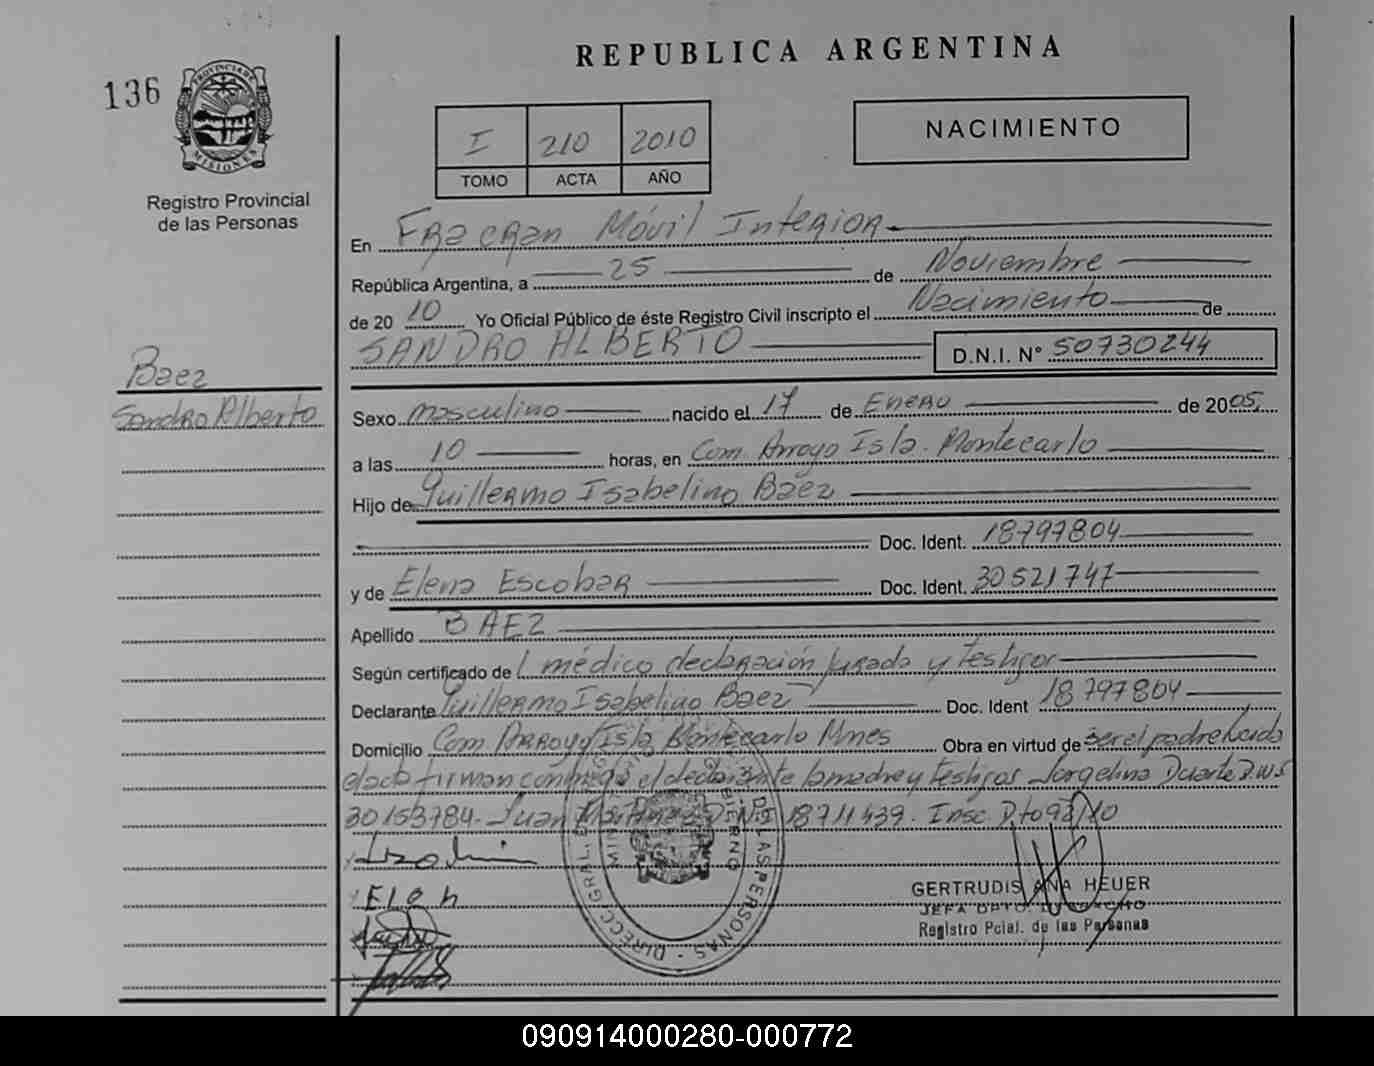 REPUBLICA ARGENTINA
136
PROVINCIA DE MISIONES
Registro Provincial
de las Personas
I 210 2010
TOMO ACTA AÑO
NACIMIENTO
En Fracran Móvil Interior
República Argentina, a 25 de Noviembre
de 2010 Yo Oficial Público de éste Registro Civil inscripto el Nacimiento de
SANDRO ALBERTO D.N.I. N° 50730244
Baez
Sandro Alberto
Sexo masculino nacido el 17 de Enero de 2005
a las 10 horas, en Com. Arroyo Isla. Montecarlo
Hijo de Guillermo Isabelino Baez
Doc. Ident. 18797804
y de Elena Escobar Doc. Ident. 30521747
Apellido BAEZ
Según certificado de l médico declaración jurada y testigos
Declarante Guillermo Isabelino Baez Doc. Ident 18797804
Domicilio Com. Arroyo Isla Montecarlo Mnes Obra en virtud de ser el padre Leida
el acta firman conmigo el declarante la madre y testigos Jorgelina Duarte
30153784. Juan 18711439. Insc. Dto 98/10
ELEN
DIRECC. GRAL. DE LAS PERSONAS
GERTRUDIS ANA HEUER
JEFA DPTO.
Registro Pcial. de las Personas
090914000280-000772